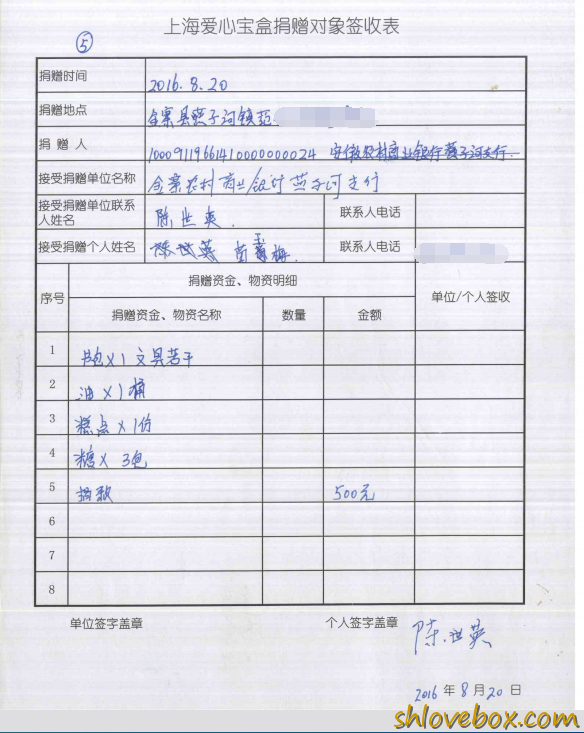 上海爱心宝盒捐赠对象签收表
⑤
捐赠时间 2016.8.20
捐赠地点 金寨县燕子河镇
捐 赠 人 10009119661410000000024 安徽农村商业银行燕子河支行
接受捐赠单位名称 金寨农村商业银行燕子河支行
接受捐赠单位联系人姓名 陈世英 联系人电话
接受捐赠个人姓名 联系人电话
序号 捐赠资金、物资明细 单位/个人签收
捐赠资金、物资名称 数量 金额
1 书包×1 文具若干
2 油×1桶
3 糕点×1份
4 糖× 3包
5 捐款 500元
6
7
8
单位签字盖章 个人签字盖章 陈世英
2016 年 8 月 20 日
shlovebox.com